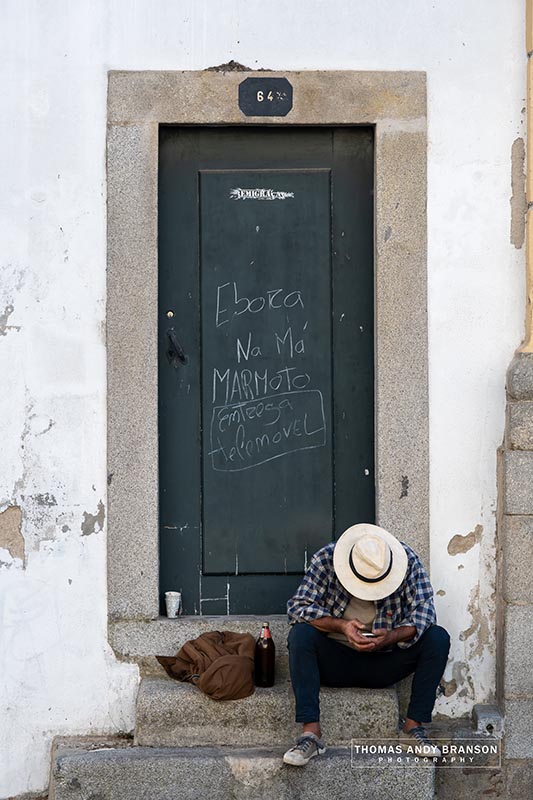 64
EMIGRAÇAS
Ebora
Na Má
MARMOTO
entrega
telemovel
THOMAS ANDY BRANSON
PHOTOGRAPHY